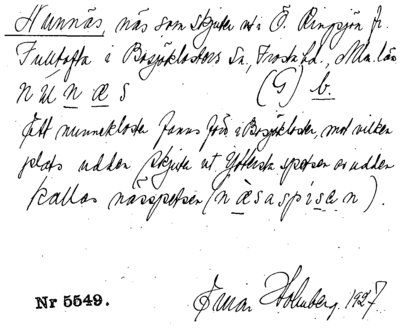 Nunnäs, näs som skjuter ut i Ö. Ringsjön fr.
Fulltofta i Bosjöklosters Sn, Frosta hd., Mlm. län
n ú n æ s (G) b.
Ett nunnekloster fanns förr i Bosjökloster, mot vilken
plats udden skjuter ut. Yttersta spetsen av udden
kallas nässpetsen (næsaspisen).
Nr 5549. Einar Holmberg. 1927